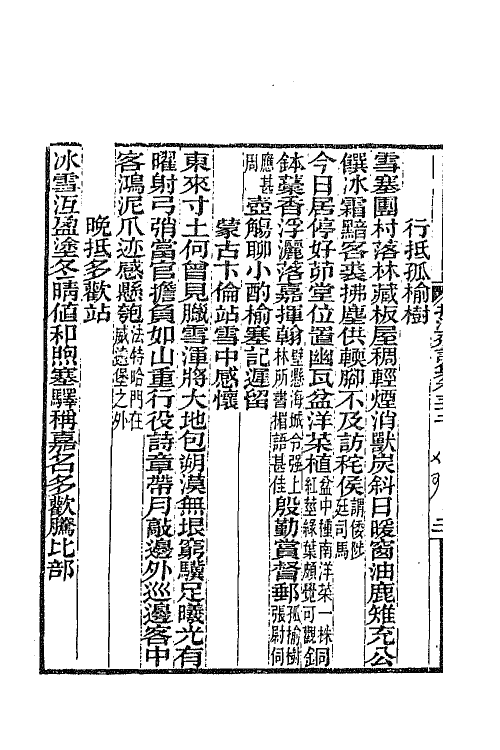 行抵孤榆樹
雪塞團村落林藏板屋稠輕煙消獸炭斜日暖窗油鹿雉充公
饌冰霜黯客裘拂塵供輭腳不及訪秺侯謂倭陟廷司馬
今日居停好茆堂位置幽瓦盆洋菜植盆中種南洋菜一株紅莖綠葉頗覺可觀銅銅
鉢蘂香浮灑落嘉揮翰壁懸海城令强上林所書楣語甚佳殷勤賞督郵孤榆樹張尉伺
應甚周壺觴聊小酌榆塞記遲留
蒙古卞倫站雪中感懷
東來寸土何曾見臘雪渾將大地包朔漠無垠窮驥足曦光有
曜射弓弰當官擔負如山重行役詩章帶月敲邊外巡邊客中
客鴻泥爪迹感懸匏法特哈門在威遠堡之外
晚抵多歡站
冰雪沍盈塗冬晴値和煦塞驛稱嘉名多歡騰比部